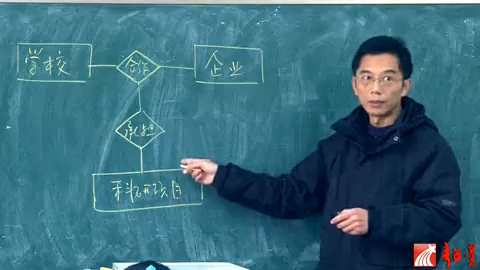 学校
合作
企业
承担
科研项目